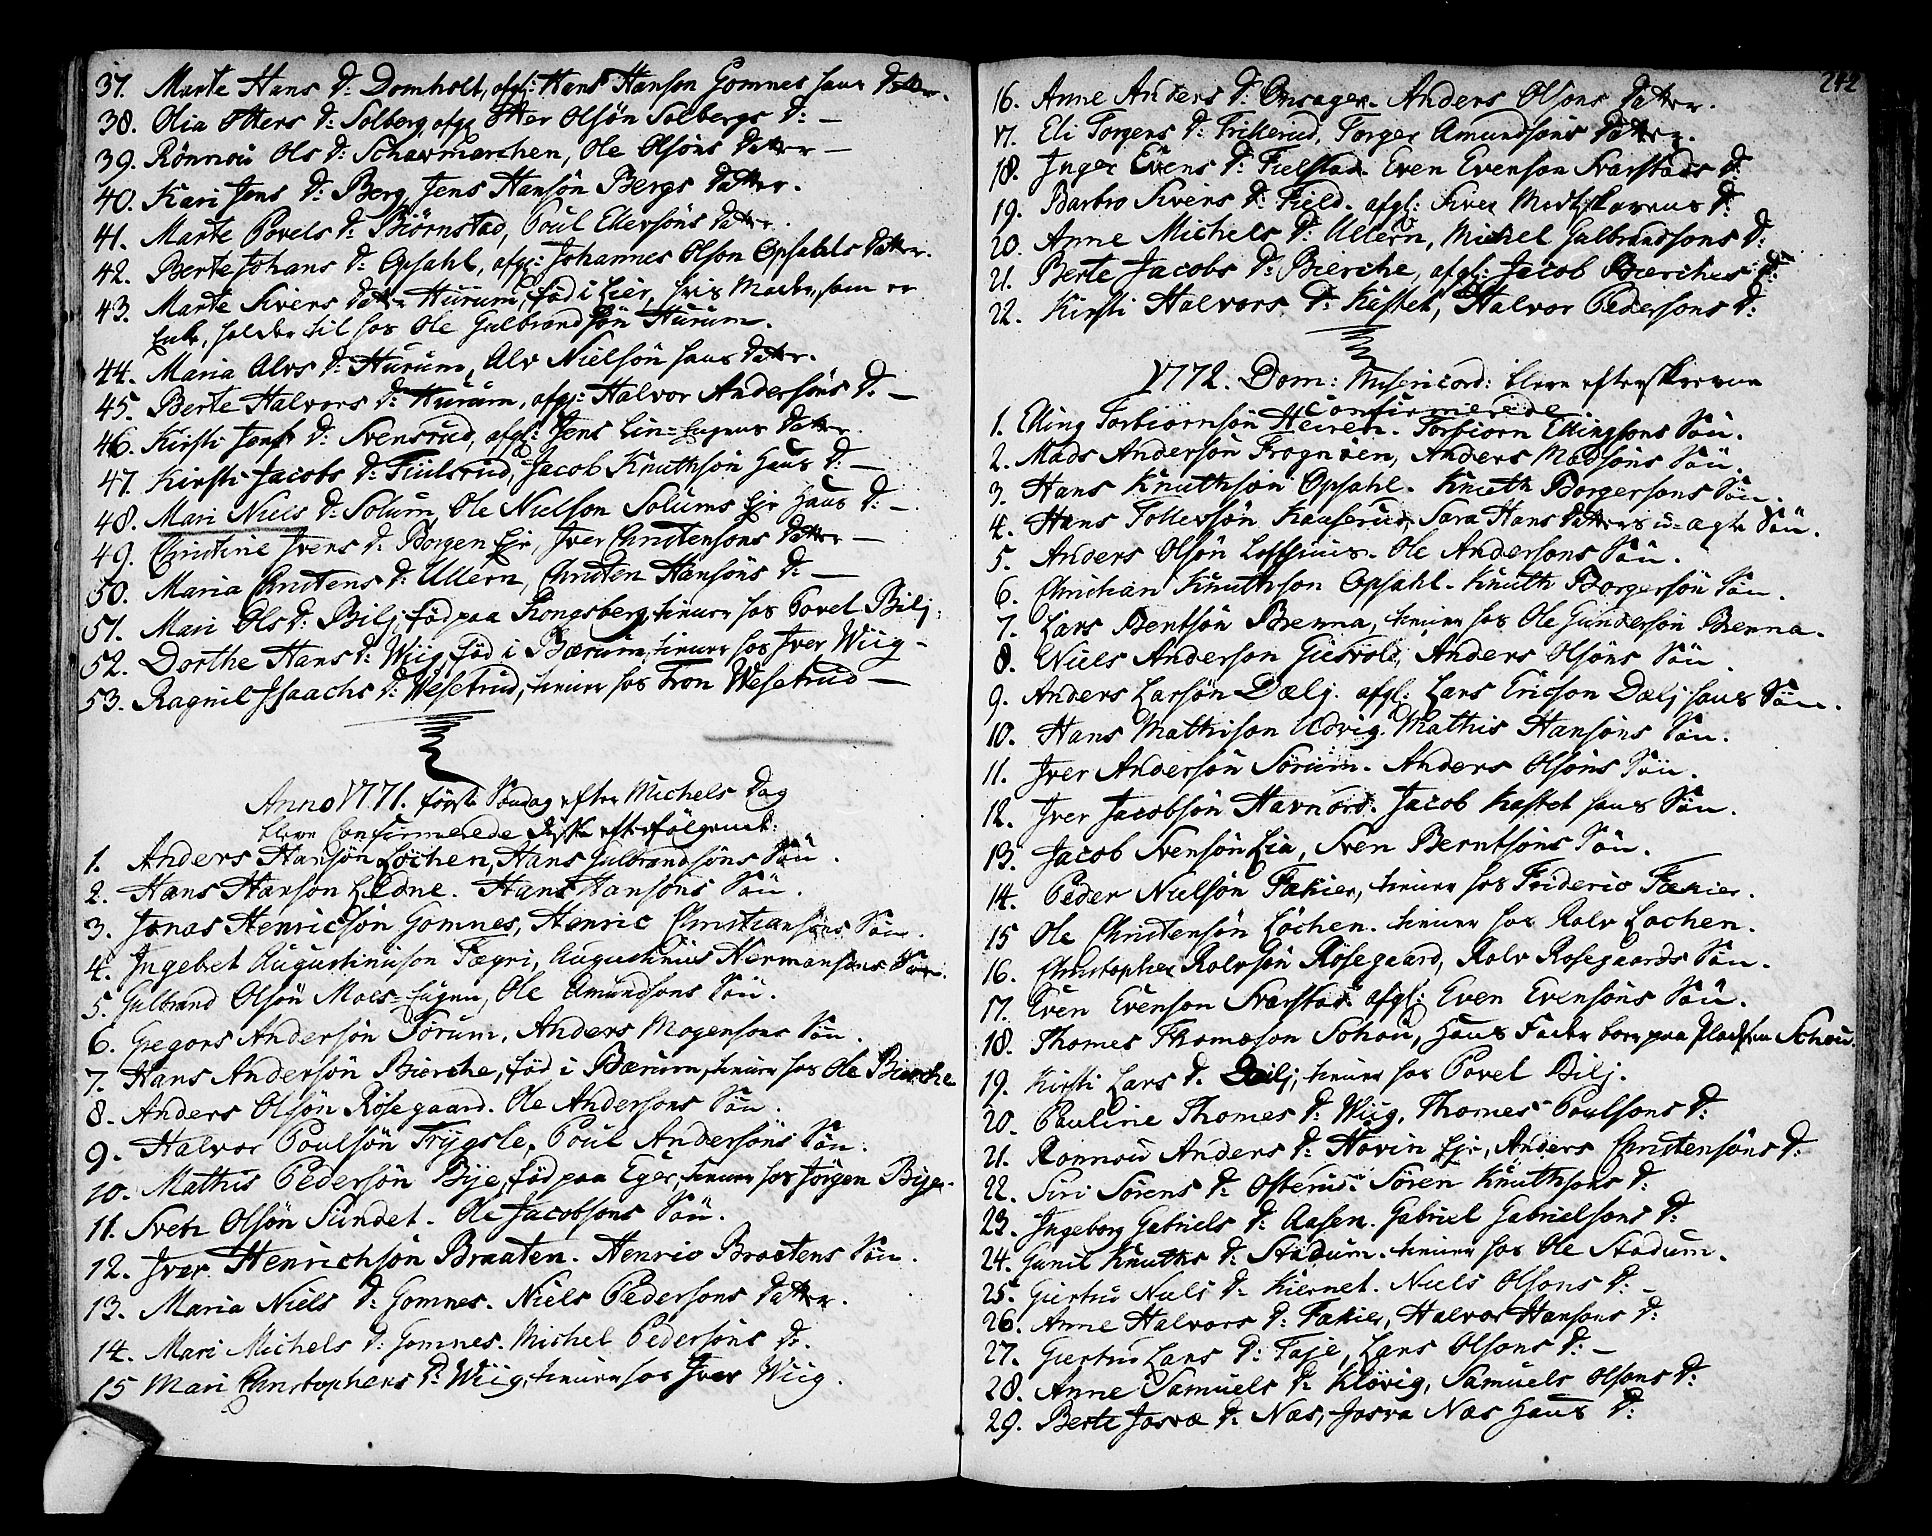 37. Marte Hans D: Domholt, afg: Hans Hanson Gomnes hans Datter.
38. Olia Otters D: Solberg, afg: Otter Olsön Solbergs D: —
39. Rönnou Ols D: Scharmarchen, Ole Olsöns Datter —
40. Kari Jens D: Berg, Jens Hansön Bergs Datter.
41. Marte Povels D: Biörnstad, Poul Edersöns Datter.
42. Berte Johans D: Opsahl, afg: Johannes Olson Opsahls Datter.
43. Marte Sivers Datter Hurum, föd i Lier, hvis Moder, som er
Enke, holder til hos Ole Gulbrandsön Hurum.
44. Maria Alvs D: Hurum, Alv Nielsön hans Datter.
45. Berte Halvors D: Hurum, afg: Halvor Andersöns D. —
46. Kirsti Jens D: Svensrud, afgl: Jens Lin-Eugens Datter.
47. Kirsti Jacobs D: Fiulsrud, Jacob Knuthsön Hans D: —
48. Mari Niels D: Solum, Ole Nielson Solums Eje Hans D: —
49. Christine Ivers D: Borgen Eje, Iver Christensons Datter —
50. Maria Christens D: Ullern, Christen Hansöns D: —
51. Mari Ols D: Bilj, föd paa Kongsberg, tiener hos Povel Bilj.
52. Dorthe Hans D: Wiig, föd i Bærum, tiener hos Iver Wiig —
53. Ragnil Isaachs D: Wesetrud, tiener hos Tron Wesetrud —
Anno 1771. förste Söndag efter Michels Dag
bleve Confirmerede disse efterfölgende:
1. Anders Hansön Löchen, Hans Gulbrandsöns Sön.
2. Hans Hanson Ledne. Hans Hansöns Sön.
3. Jonas Henricsön Gomnes, Henric Christiansöns Sön.
4. Ingebret Augustinuson Fægri, Augustinus Hermansens Sön.
5. Gulbrand Olsön Moes-Eugen, Ole Amundsons Sön.
6. Gregors Andersön Sörum, Anders Mogensons Sön.
7. Hans Andersön Bierche, föd i Bærum, tiener hos Ole Bierche
8. Anders Olsön Rösegaard. Ole Andersons Sön.
9. Halvor Poulsön Trygsle, Poul Andersöns Sön.
10. Mathis Pedersön Bye, föd paa Eger, tiener hos Jörgen Bye.
11. Sven Olsön Sundet. Ole Jacobsons Sön.
12. Iver Henrichsön Braaten. Henric Braatens Sön.
13. Maria Niels D: Gomnes. Niels Pedersons Datter.
14. Mari Michels D: Gomnes. Michel Pedersöns D:.
15 Mari Christophers D: Wiig, tiener hos Iver Wiig.
242
16. Anne Anders D: Onsager. Anders Olsons Datter.
17. Eli Torgers D: Frikerud, Torger Amundsöns Datter.
18. Inger Evens D: Fielstad. Even Evenson Svarstads D:
19. Barbro Sivers D: Field. afgl: Siver Modtskovens D:
20. Anne Michels D: Ullern, Michel Gulbrandsons D:
21. Berte Jacobs D: Bierche, afgl: Jacob Bierches D:
22. Kirsti Halvors D: Kastet, Halvor Pedersons D:
1772. Dom: Misericord: bleve efterskrevne
confirmerede
1. Elling Torbiörnsön Heiren. Torbiorn Ellingsons Sön.
2. Mads Andersön Frognöen, Anders Madsöns Sön.
3. Hans Knuthsön Opsahl. Knuth Borgersons Sön.
4. Hans Tollevsön Hauserud, Sara Hans Datters u-ægte Sön.
5. Anders Olsön Lofthuus. Ole Andersons Sön.
6. Christian Knuthson Opsahl. Knuth Borgersön Sön.
7. Lars Bentsön Brenna, tiener hos Ole Gundersön Brenna.
8. Niels Anderson Giesvold, Anders Olsöns Sön.
9. Anders Larsön Dælj. afgl: Lars Ericson Dælj hans Sön.
10. Hans Mathison Udvig. Mathis Hansöns Sön.
11. Iver Andersön Sörum. Anders Olsöns Sön.
12. Iver Jacobsön Havnord. Jacob Kastet hans Sön.
13. Jacob Svensön Lia, Sven Berntsöns Sön.
14. Peder Nielsön Fækier, tiener hos Frideric Fækier.
15 Ole Christensön Löchen. tiener hos Rolv Lochen.
16. Christopher Rolvsön Rösegaard, Rolv Rosegaards Sön.
17. Even Evenson Svarstad. afgl: Even Evensöns Sön.
18. Thomes Thomeson Schou, hans Fader boer paa Pladsen Schou
19. Kirsti Lars D. Bilj, tiener hos Povel Bilj.
20. Pauline Thomes D: Wiig, Thomes Poulsons D:
21. Ronnou Anders D: Hovin Eje, Anders Christensöns D:
22. Siri Sörens D: Ofterud. Sören Knuthsons D:
23. Ingeborg Gabriels D: Aasen. Gabriel Gabrielsons D:
24. Gunil Knuths D: Stadum. tiener hos Ole Stadum.
25. Giertrud Niels D: Kiernet. Niels Olsons D: —
26. Anne Halvors D: Fækier, Halvor Hansons D:
27. Giertrud Lars D: Faje, Lars Olsons D: —
28. Anne Samuels D: Klövig, Samuels Olsons D:
29. Berte Josva D: Næs, Josva Næs Hans D: